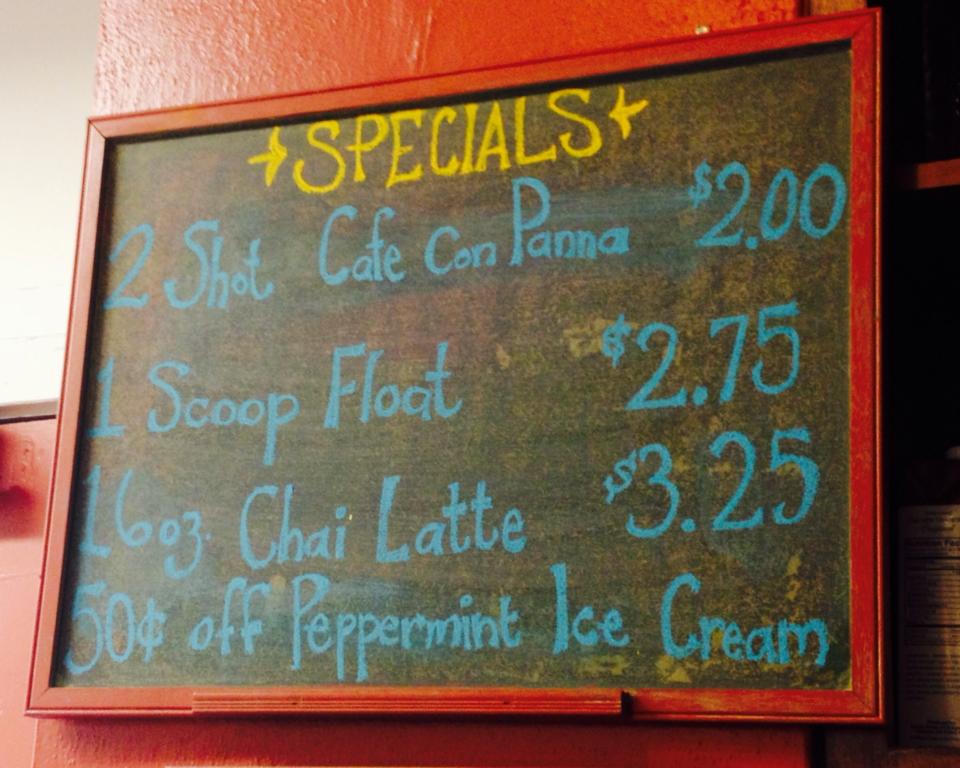 SPECIALS
2 Shot Cafe Con Panna $2.00
1 Scoop Float $2.75
16oz. Chai Latte $3.25
50¢ off Peppermint Ice Cream